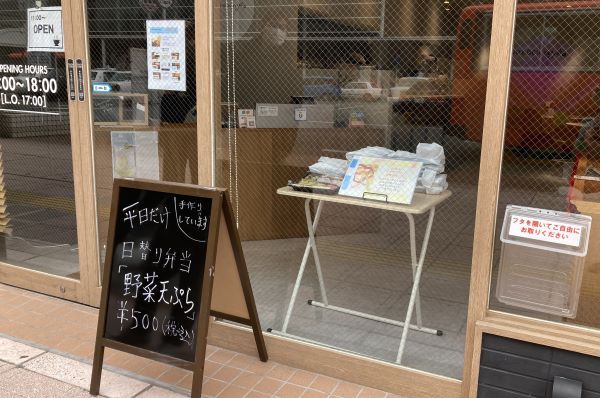 11:00～
OPEN
OPENING HOURS
:00～18:00
[L.O.17:00]
平日だけ
手作り
しています
日替り弁当
「野菜天ぷら」
¥500(税込)
フタを開いてご自由に
お取りください